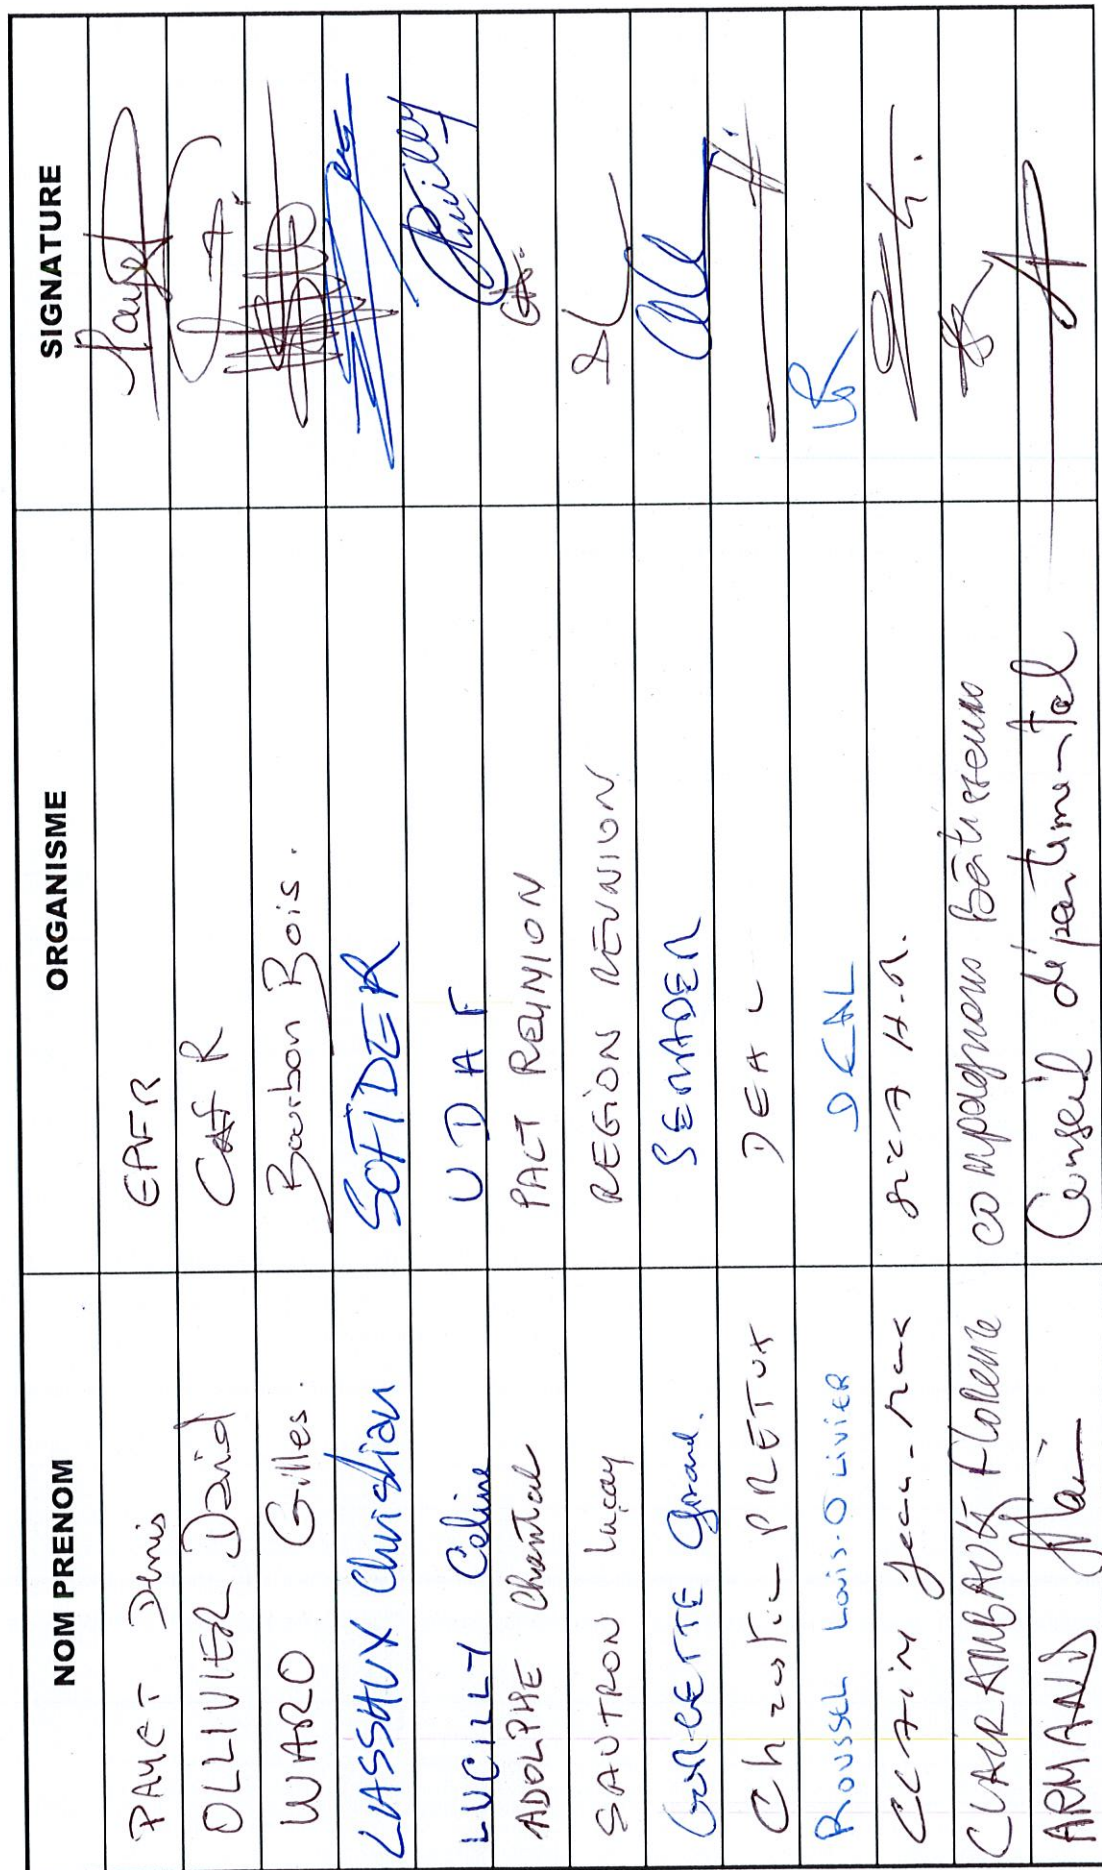 NOM PRENOM ORGANISME SIGNATURE
PAYET Denis EPFR Payet
OLLIVIER David CAF R
WARO Gilles. Bourbon Bois.
LASSHUX Christian SOFIDER
LUCILLY Celine UDAF Lucilly
ADOLPHE Chantal PACT REUNION
SAUTRON Luçay REGION REUNION
Gérard. SEMADER
Christian PRETUX DEAL
ROUSSEL Louis-OLIVIER DEAL
CLAIN Jean-Marc SICA H.R.
CLAIRAMBAULT Florence compagnons bâtisseurs
ARMAND Alain Conseil départemental